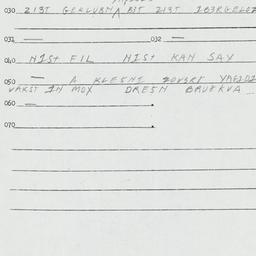 030 ZIST GEKLUBNA BIT ZIST
031 — 032 —
040 NIST FIL NIST KAN SAY
050 — A KLESNE
VAKST IN MOX DRESN BRUKKVA
060 —
070